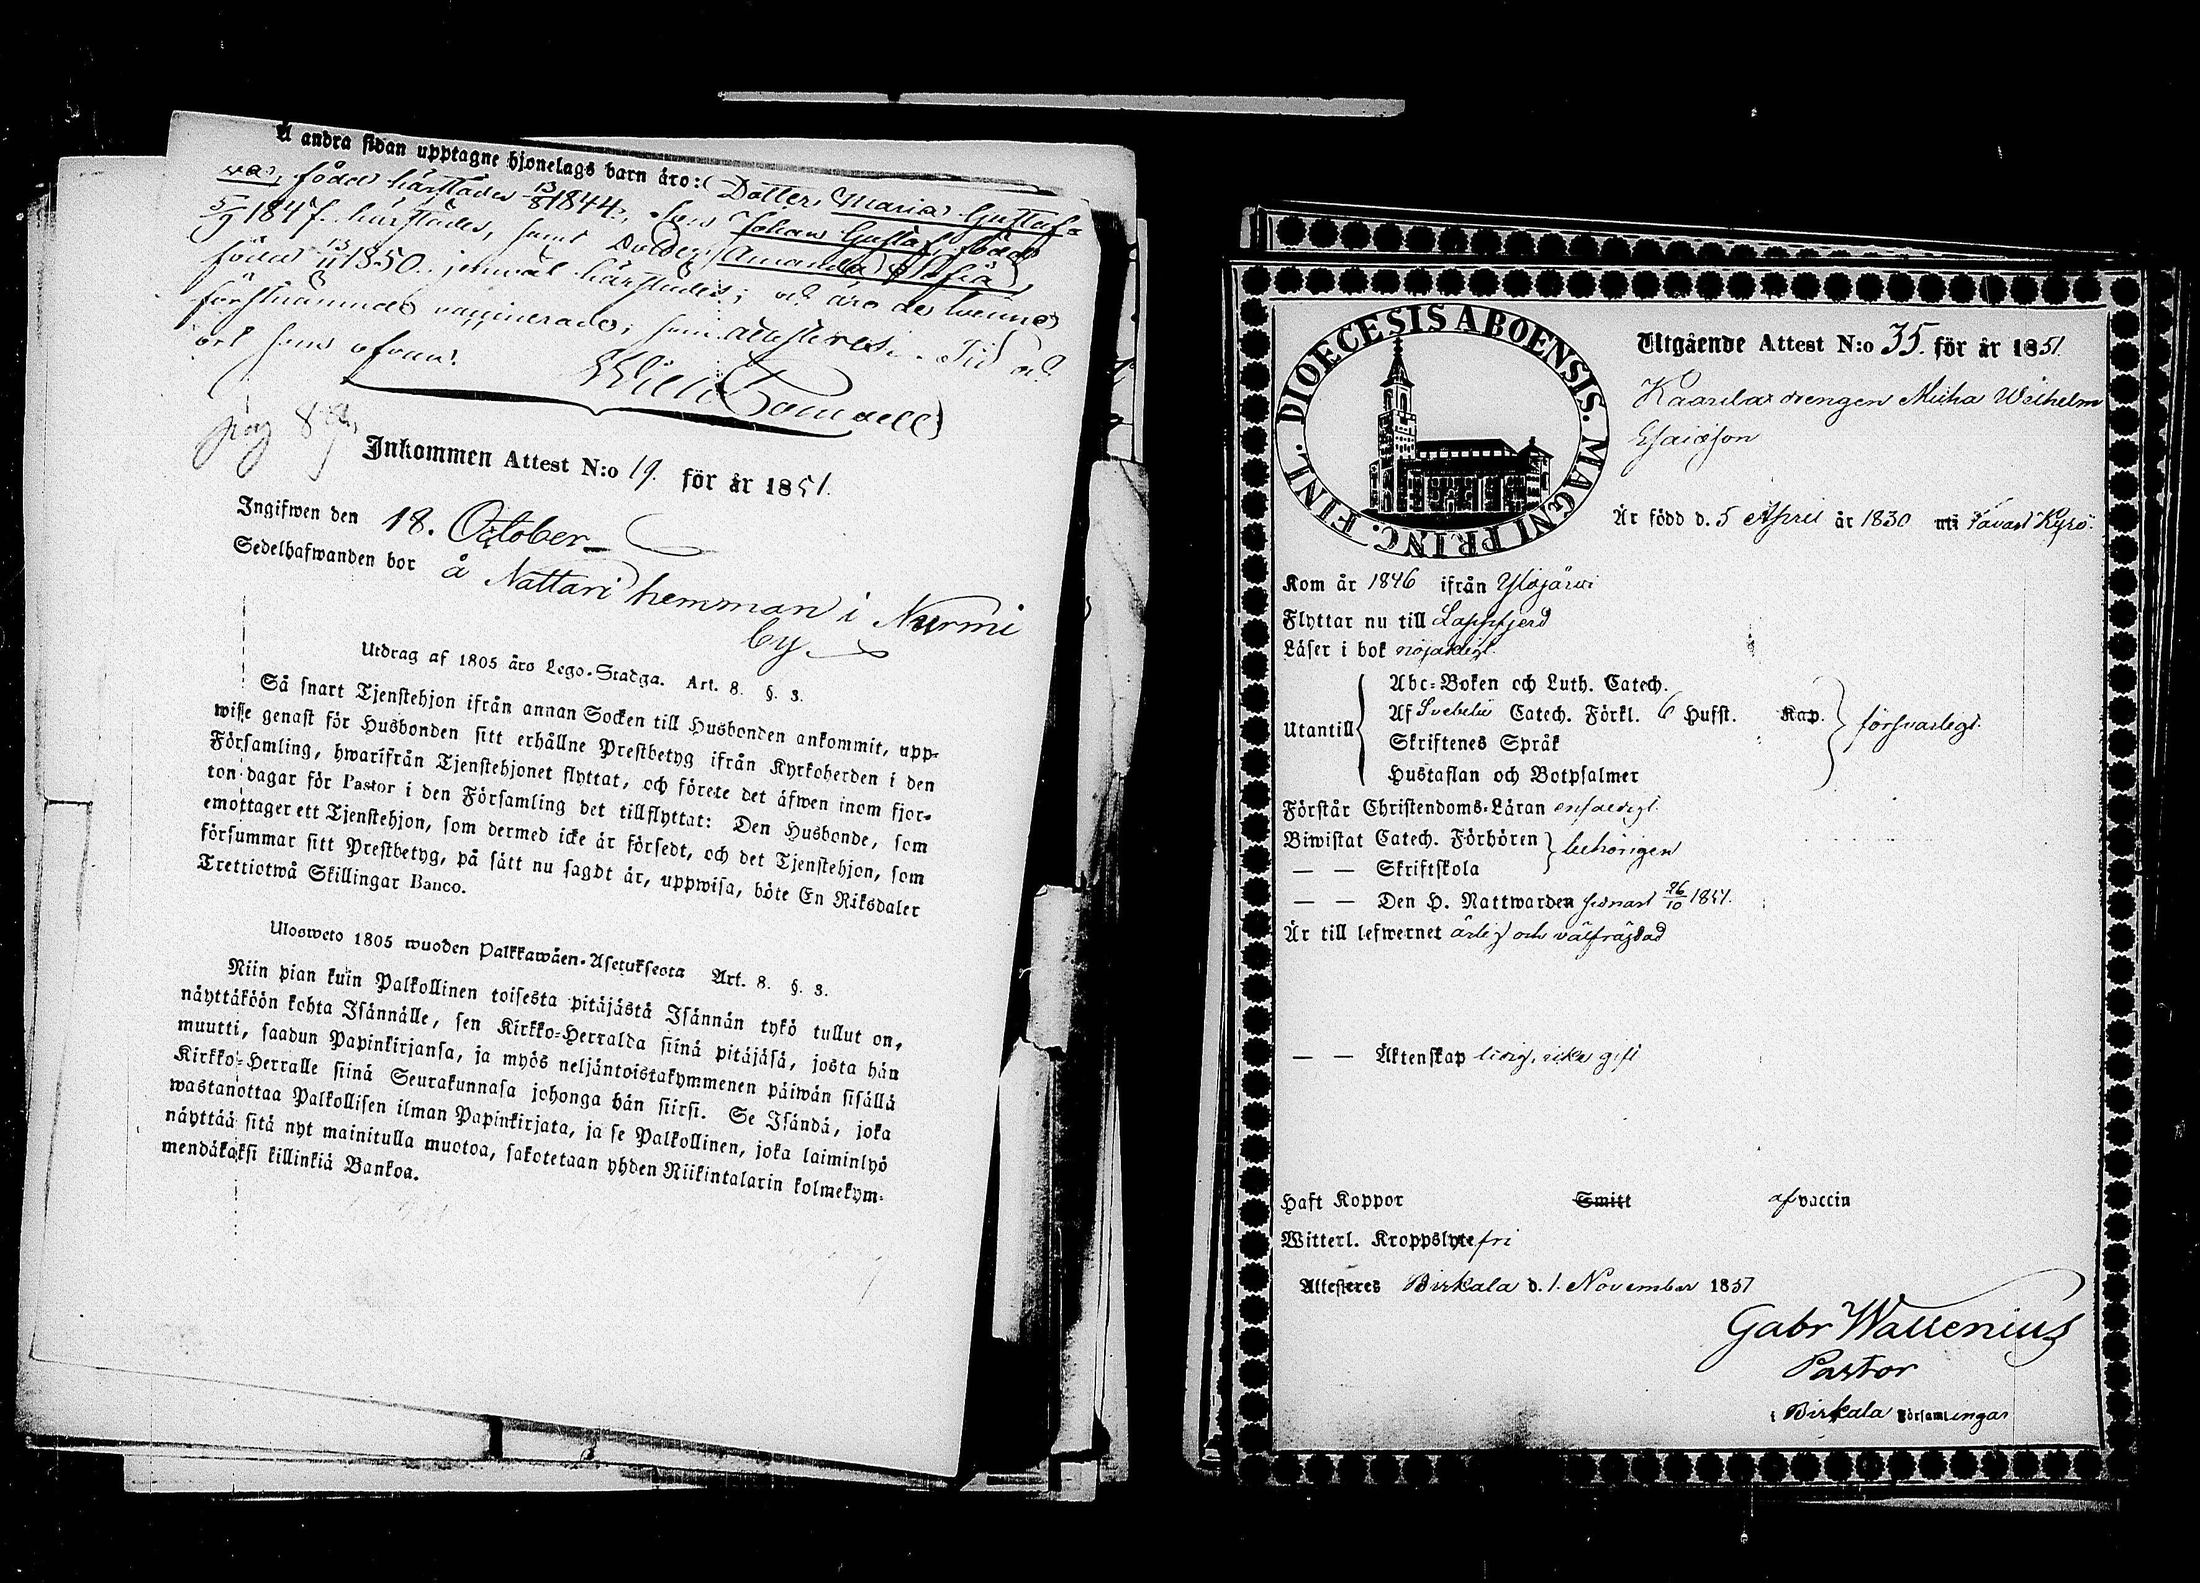 Å andra sidan upptagne hjonelags barn äro: Dotter Maria Gustafs-
va, född härstädes 13/8 1844, Son Johan Gustaf, född
5/9 1847 härstädes, samt Dotter Amanda Sofia,
född 13/11 1850 jemväl härstädes; och äro de tvenne
förstnämnde vaccinerade; som attesteras. Tid och
ort som ofvan.
pag 89
Inkommen Attest N:o 19. för år 1851.
Ingifwen den 18. October
Sedelhafwanden bor å Nattari hemman i Nurmi
by
Utdrag af 1805 års Lego-Stadga. Art. 8. §. 3.
Så snart Tjenstehjon ifrån annan Socken till Husbonden ankommit, upp-
wise genast för Husbonden sitt erhållne Prestbetyg ifrån Kyrkoherden i den
Församling, hwarifrån Tjenstehjonet flyttat, och förete det äfwen inom fjor-
ton dagar för Pastor i den Församling det tillflyttat: Den Husbonde, som
emottager ett Tjenstehjon, som dermed icke är försedt, och det Tjenstehjon, som
försummar sitt Prestbetyg, på sätt nu sagdt är, uppwisa, böte En Riksdaler
Trettiotwå Skillingar Banco.
Ulosweto 1805 wuoden Palkkawäen-Asetuksesta Art. 8. §. 3.
Niin pian kuin Palkollinen toisesta pitäjästä Isännän tykö tullut on,
näyttäköön kohta Isännälle, sen Kirkko-Herralda siinä pitäjäsä, josta hän
muutti, saadun Papinkirjansa, ja myös neljäntoistakymmenen päiwän sisällä
Kirkko-Herralle siinä Seurakunnasa johonga hän siirsi. Se Isändä, joka
wastanottaa Palkollisen ilman Papinkirjata, ja se Palkollinen, joka laiminlyö
näyttää sitä nyt mainitulla muotoa, sakotetaan yhden Riikintalarin kolmekym-
mendäkaksi killinkiä Bankoa.
DIOECESIS ABOENSIS. MAGNI PRINC. FINL.
Utgående Attest N:o 35. för år 1851.
Kaarila drengen Micha Wilhelm
Esaiæson
Är född d. 5 April år 1830 uti Tavast Kyrö.
Kom år 1846 ifrån Ylöjärwi
Flyttar nu till Lappfjerd
Läser i bok nöjaktigt
Utantill
Abc-Boken och Luth. Catech.
Af Svebelii Catech. Förkl. 6 Hufst. Kap.
Skriftenes Språk
Hustaflan och Botpsalmer
försvarligt.
Förstår Christendoms-Läran enfaldigt.
Biwistat Catech. Förhören
— — Skriftskola
behörigen
— — Den H. Nattwarden sednast 26/10 1851.
Är till lefwernet ärlig och välfräjdad
— — Äktenskap ledig, icke gift
Haft Koppor Smitt af vaccin
Witterl. Kroppslyte fri
Attesteres Birkala d. 1. November 1851
Gabr Wallenius
Pastor
i Birkala Församlingar